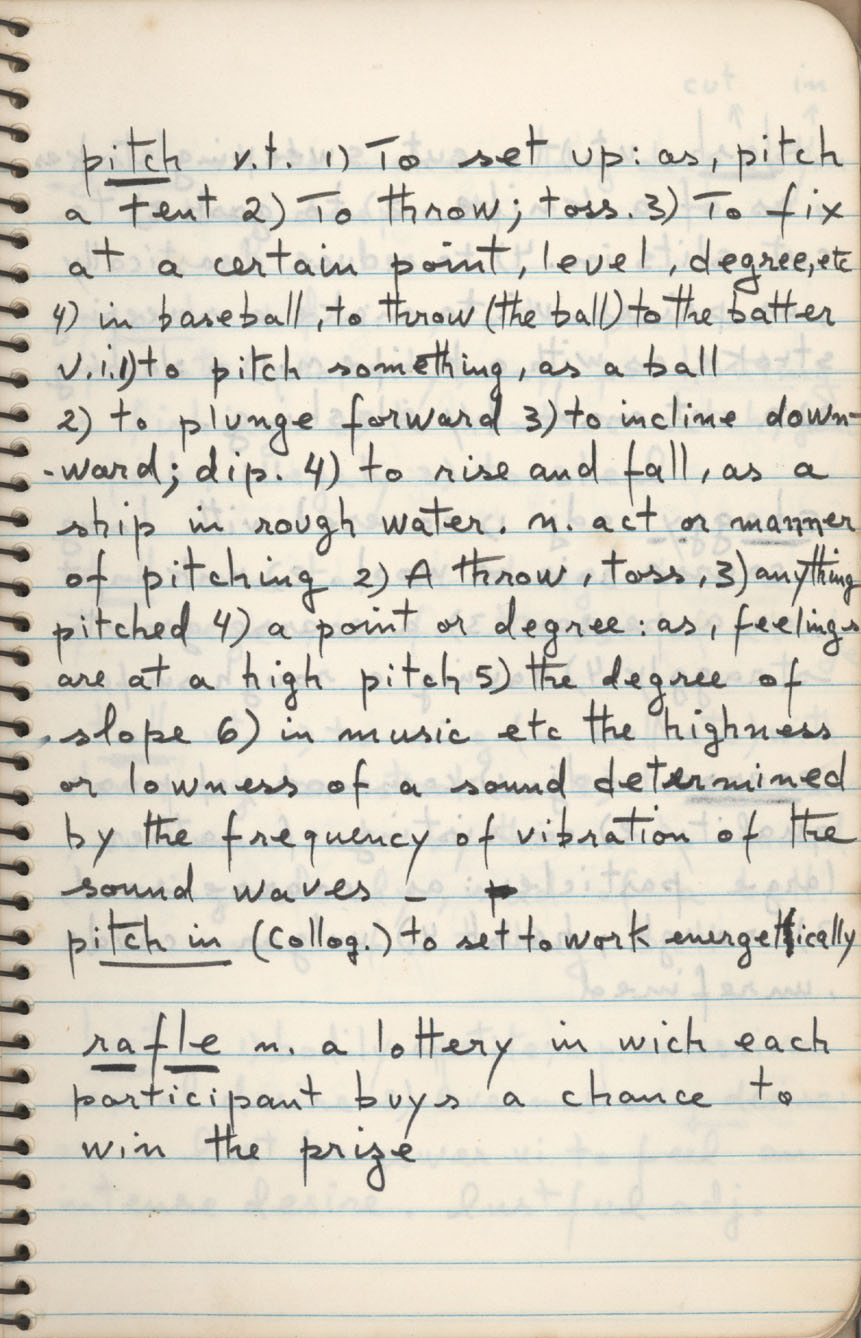 pitch v.t. 1) To set up: as, pitch
a tent 2) To throw; toss. 3) To fix
at a certain point, level, degree, etc
4) in baseball, to throw (the ball) to the batter
v.i. 1) to pitch something, as a ball
2) to plunge forward 3) to incline down-
-ward; dip. 4) to rise and fall, as a
ship in rough water. n. act or manner
of pitching 2) A throw, toss, 3) anything
pitched 4) a point or degree: as, feelings
are at a high pitch 5) the degree of
slope 6) in music etc the highness
or lowness of a sound determined
by the frequency of vibration of the
sound waves –
pitch in (Colloq.) to set to work energetically
rafle n. a lottery in wich each
participant buys a chance to
win the prize